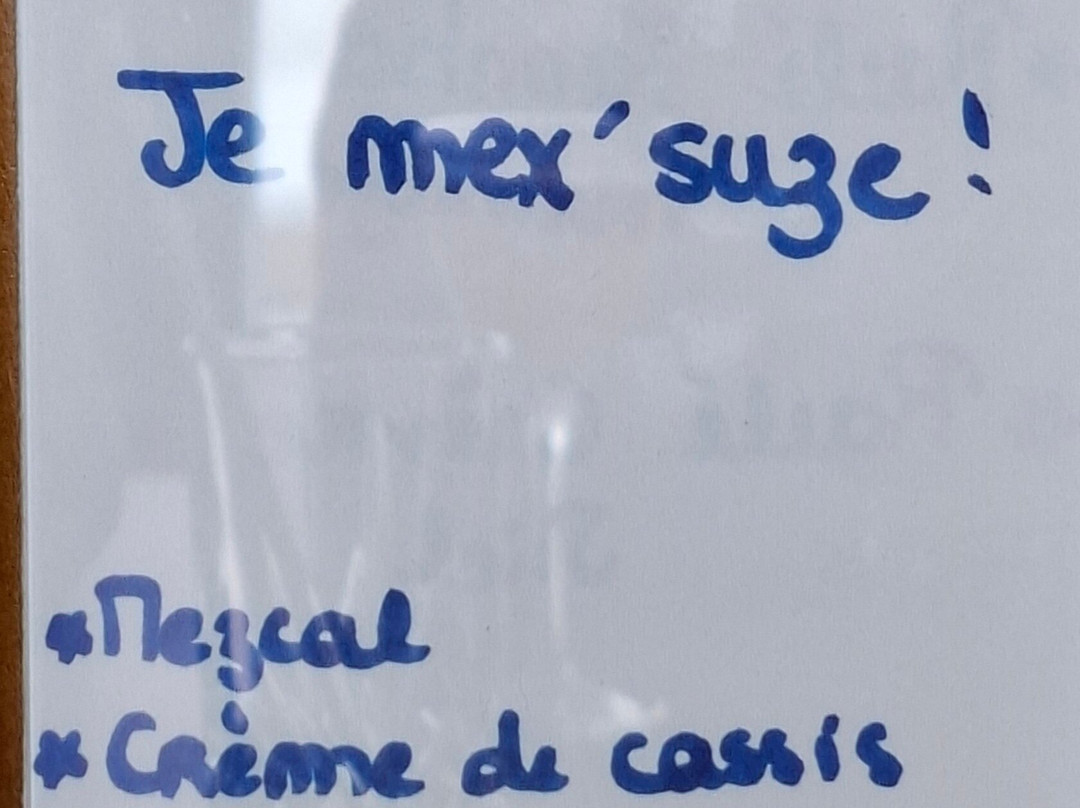 Je mex'suze !
* Mezcal
* Crème de cassis